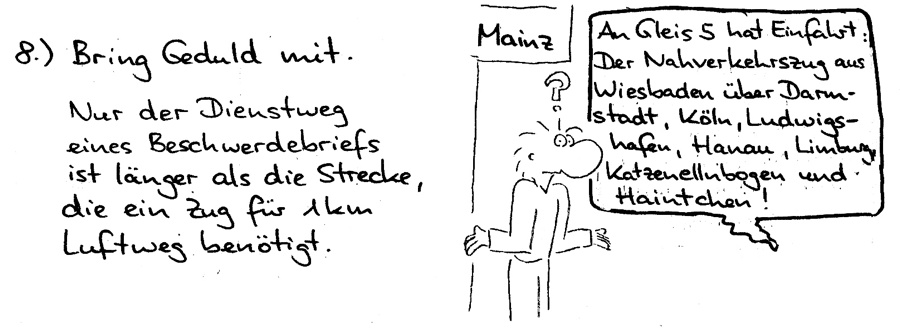 8.) Bring Geduld mit.
Nur der Dienstweg
eines Beschwerdebriefs
ist länger als die Strecke,
die ein Zug für 1km
Luftweg benötigt.
Mainz
?
An Gleis 5 hat Einfahrt:
Der Nahverkehrszug aus
Wiesbaden über Darm-
stadt, Köln, Ludwigs-
hafen, Hanau, Limburg,
Katzenellnbogen und
Haintchen!